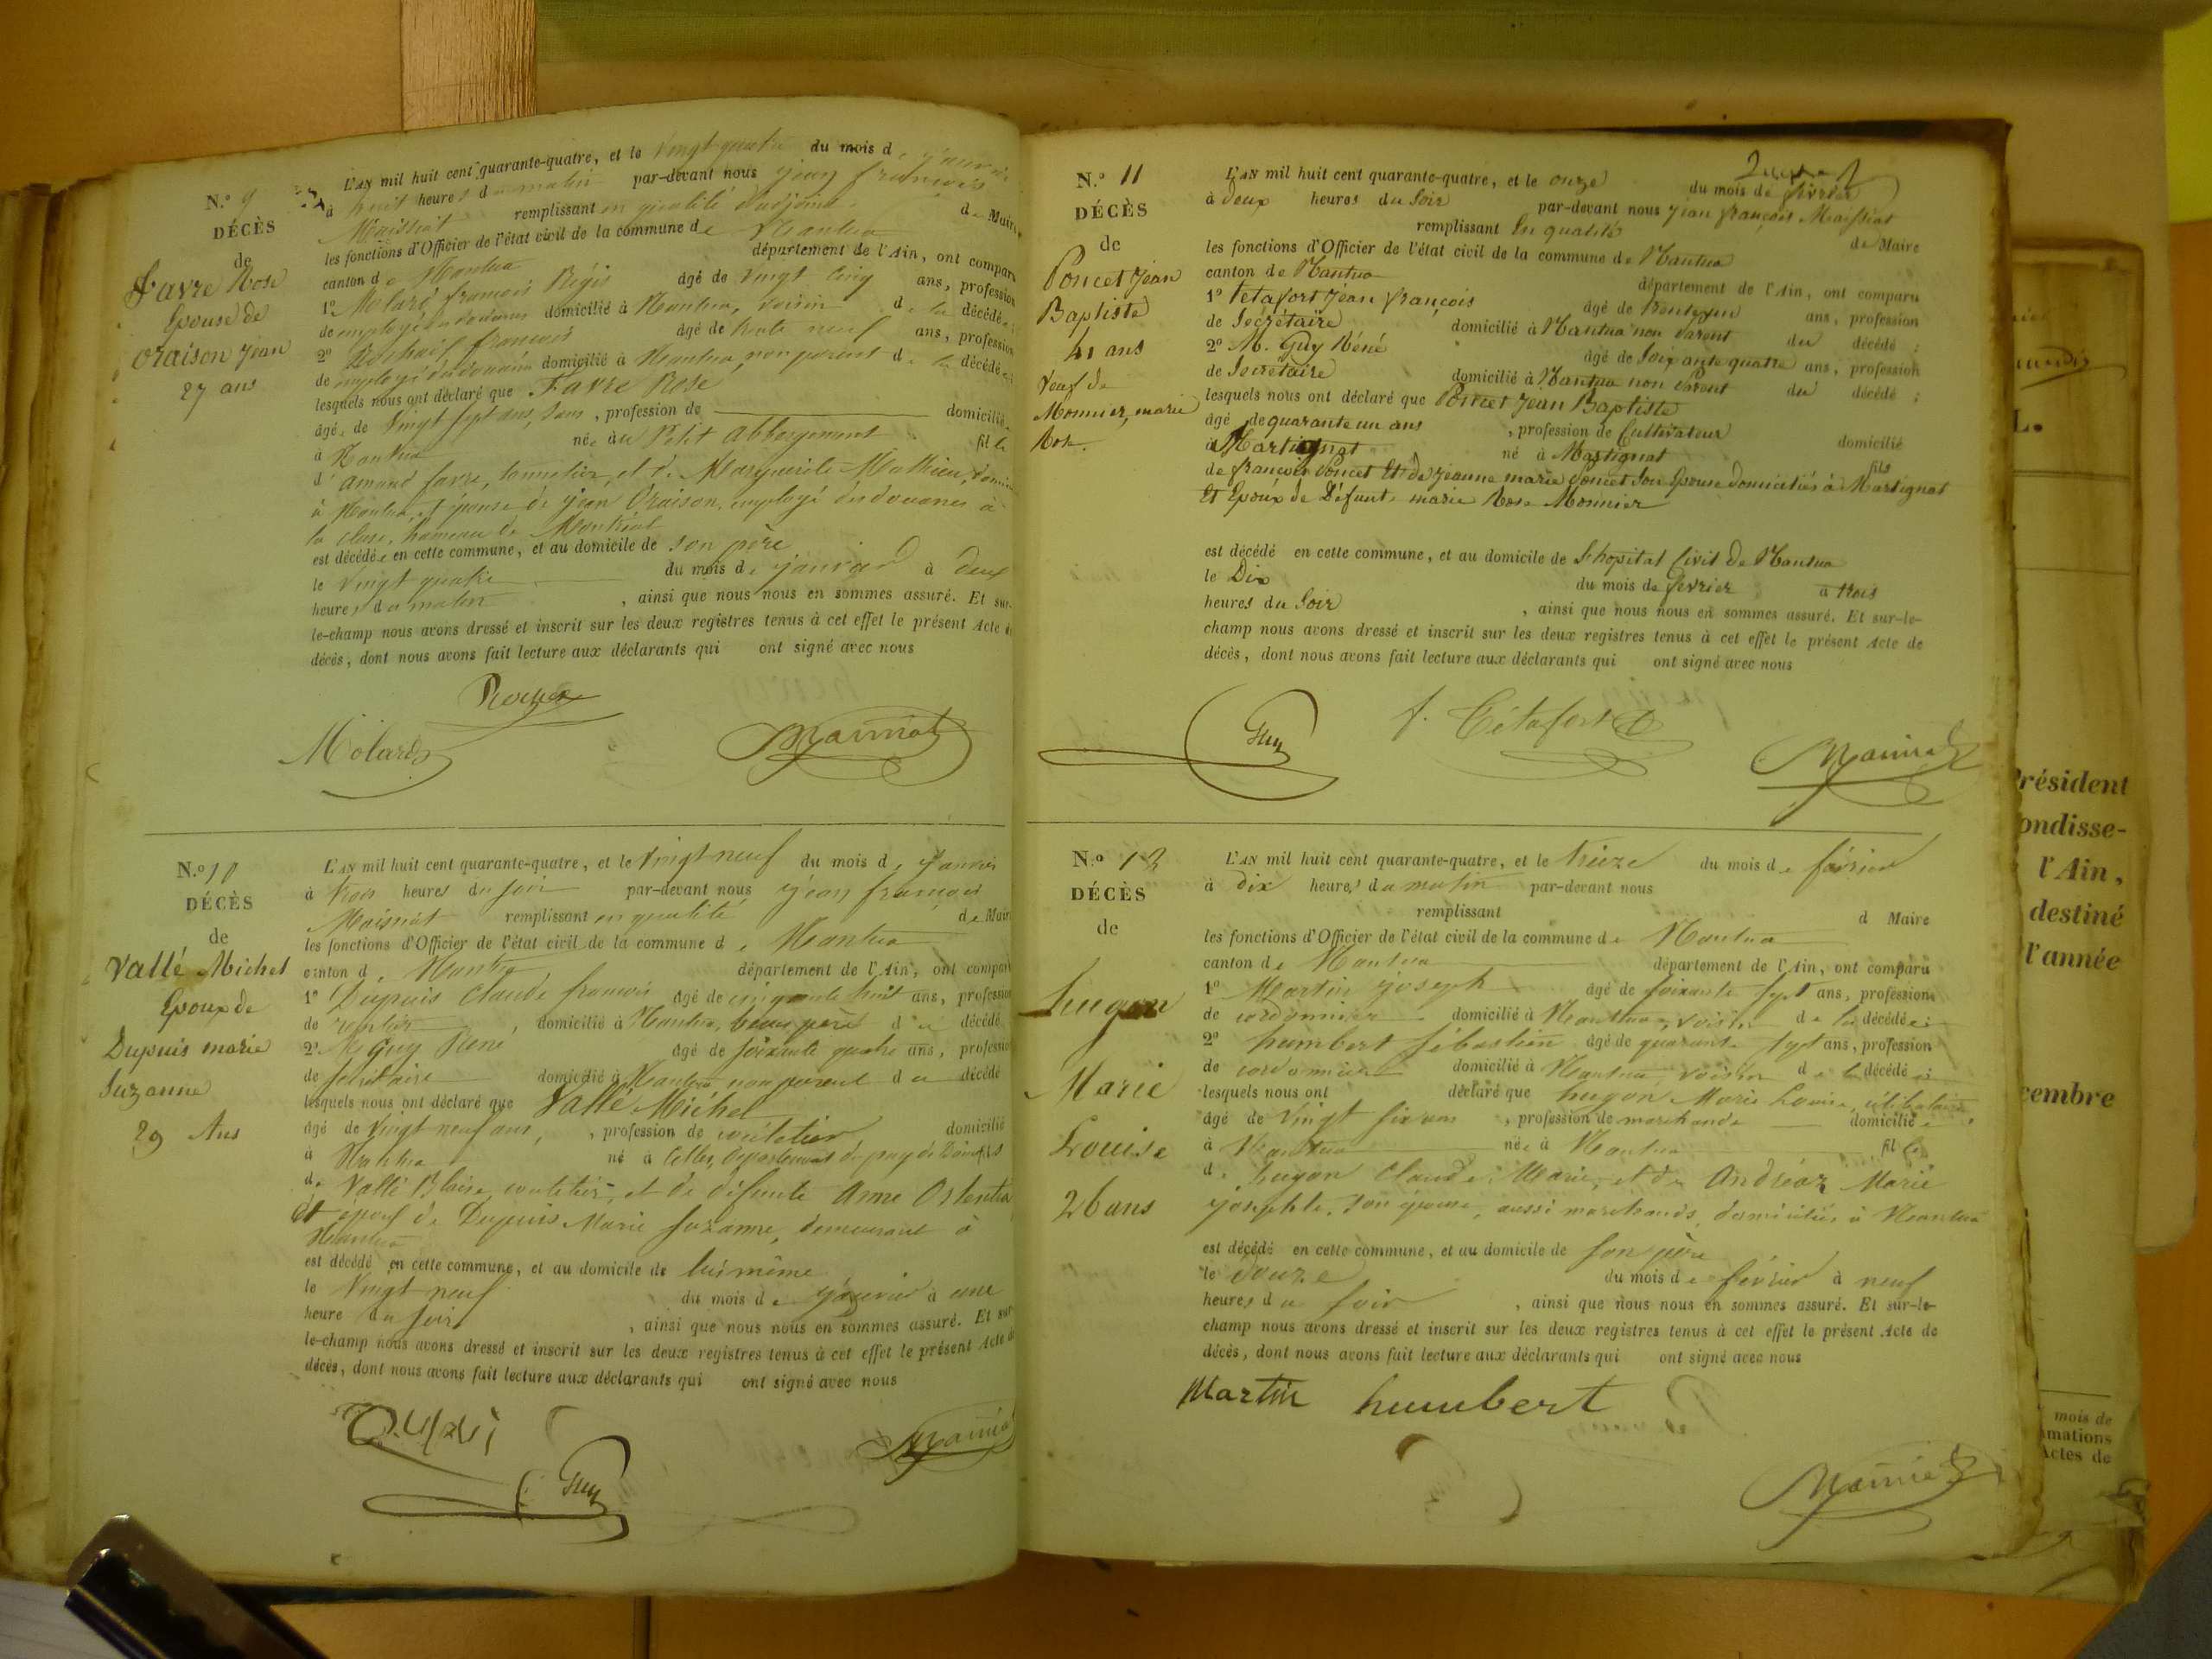 N.o 9
DÉCÈS
de
Favre Rose
Epouse de
Oraison Jean
27 ans
L'AN mil huit cent quarante-quatre, et le vingt quatre du mois de janvier
à huit heures du matin par-devant nous jean françois
Maissiat remplissant en qualité d'adjoint de Maire
les fonctions d'Officier de l'état civil de la commune de Nantua
canton de Nantua département de l'Ain, ont comparu
1º Molard françois Régis âgé de vingt cinq ans, profession
de employé des douanes domicilié à Nantua, voisin de la décédée
2º françois âgé de trente neuf ans, profession
de employé des douanes domicilié à Nantua, non parent de la décédée
lesquels nous ont déclaré que Favre Rose
âgée de vingt sept ans, , profession de domiciliée
à Nantua née au Petit Abbergement fille
d'Amand favre, tonnelier, et de Marguerite Mathieu,
à Nantua, et épouse de jean Oraison, employé des douanes à
la cluse, hameau de Montréal
est décédée en cette commune, et au domicile de son père
le vingt quatre du mois de janvier à deux
heures du matin , ainsi que nous nous en sommes assuré. Et sur-
le-champ nous avons dressé et inscrit sur les deux registres tenus à cet effet le présent Acte de
décès, dont nous avons fait lecture aux déclarants qui ont signé avec nous
Molard
Maissiat
N.o 10
DÉCÈS
de
Vallé Michel
Epoux de
Dupuis marie
Suzanne
29 Ans
L'AN mil huit cent quarante-quatre, et le vingt neuf du mois de janvier
à trois heures du soir par-devant nous jean françois
Maissiat remplissant en qualité de Maire
les fonctions d'Officier de l'état civil de la commune de Nantua
canton de Nantua département de l'Ain, ont comparu
1º Dupuis Claude françois âgé de cinquante huit ans, profession
de rentier , domicilié à Nantua, beau père du décédé
2º Me Guy René âgé de soixante quatre ans, profession
de secrétaire domicilié à Nantua non parent du décédé
lesquels nous ont déclaré que Vallé Michel
âgé de vingt neuf ans, , profession de coutelier domicilié
à Nantua né à Celles, département du puy de Dôme fils
de Vallé Blaise, coutelier, et de défunte Anne Ostentia
et époux de Dupuis Marie Suzanne, demeurant à
Nantua
est décédé en cette commune, et au domicile de lui même
le vingt neuf du mois de janvier à une
heure du soir , ainsi que nous nous en sommes assuré. Et sur-
le-champ nous avons dressé et inscrit sur les deux registres tenus à cet effet le présent Acte de
décès, dont nous avons fait lecture aux déclarants qui ont signé avec nous
Dupui
Guy
Maissiat
N.o 11
DÉCÈS
de
Poncet Jean
Baptiste
41 ans
Veuf de
Monnier, marie
Rose.
L'AN mil huit cent quarante-quatre, et le onze du mois de février
à deux heures du Soir par-devant nous jean françois Maissiat
remplissant En qualité de Maire
les fonctions d'Officier de l'état civil de la commune de Nantua
canton de Nantua département de l'Ain, ont comparu
1º Tetafort Jean françois âgé de trente un ans, profession
de Secrétaire domicilié à Nantua non parent du décédé ;
2º M. Guy Réné âgé de Soixante quatre ans, profession
de Secrétaire domicilié à Nantua non parent du décédé ;
lesquels nous ont déclaré que Poncet Jean Baptiste
âgé de quarante un ans , profession de Cultivateur domicilié
à Martignat né à Martignat fils
de françois Poncet Et de jeanne marie Poncet son Epouse domiciliés à Martignat
Et Epoux de Défunte marie Rose Monnier
est décédé en cette commune, et au domicile de l'hopital Civil de Nantua
le Dix du mois de février à trois
heures du Soir , ainsi que nous nous en sommes assuré. Et sur-le-
champ nous avons dressé et inscrit sur les deux registres tenus à cet effet le présent Acte de
décès, dont nous avons fait lecture aux déclarants qui ont signé avec nous
Guy
f. Tétafort
Maissiat
N.o 12
DÉCÈS
de
hugon
Marie
Louise
26 ans
L'AN mil huit cent quarante-quatre, et le treize du mois de février
à dix heures du matin par-devant nous
remplissant d Maire
les fonctions d'Officier de l'état civil de la commune de Nantua
canton de Nantua département de l'Ain, ont comparu
1º Martin joseph âgé de soixante sept ans, profession
de cordonnier domicilié à Nantua, voisin de la décédée
2º humbert sébastien âgé de quarante sept ans, profession
de cordonnier domicilié à Nantua, voisin de la décédée
lesquels nous ont déclaré que hugon Marie Louise, célibataire
âgé de vingt six ans , profession de marchande domiciliée
à Nantua née à Nantua fille
de hugon Claude Marie, et de Andréaz Marie
josephte, son épouse, aussi marchands, domiciliés à Nantua
est décédé en cette commune, et au domicile de son père
le douze du mois de février à neuf
heures du soir , ainsi que nous nous en sommes assuré. Et sur-le-
champ nous avons dressé et inscrit sur les deux registres tenus à cet effet le présent Acte de
décès, dont nous avons fait lecture aux déclarants qui ont signé avec nous
Martin humbert
Maissiat
Président
ondisse-
l'Ain,
destiné
l'année
cembre
mois de
mations
Actes de